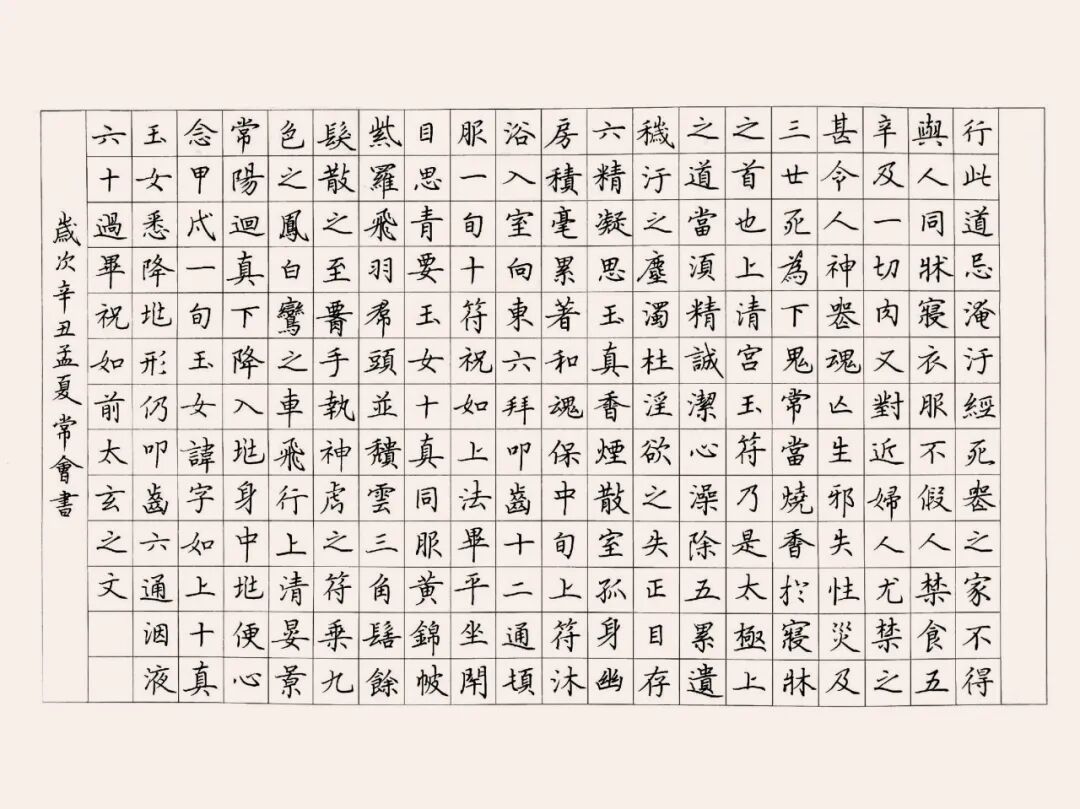 行此道忌淹汙經死喪之家不得
與人同牀寢衣服不假人禁食五
辛及一切肉又對近婦人尤禁之
甚令人神喪魂亡生邪失性災及
三世死為下鬼常當燒香於寢牀
之首也上清宮玉符乃是太極上
之道當須精誠潔心澡除五累遺
穢汙之塵濁杜淫欲之失正目存
六精凝思玉真香煙散室孤身幽
房積毫累著和魂保中旬上符沐
浴入室向東六拜叩齒十二通頃
服一旬十符祝如上法畢平坐閉
目思青要玉女十真同服黃錦帔
紫羅飛羽帬頭並頹雲三角髻餘
髮散之至腰手執神虎之符乘九
色之鳳白鸞之車飛行上清晏景
常陽迴真下降入兆身中兆便心
念甲戌一旬玉女諱字如上十真
玉女悉降兆形仍叩齒六通咽液
六十過畢祝如前太玄之文
歲次辛丑孟夏常會書